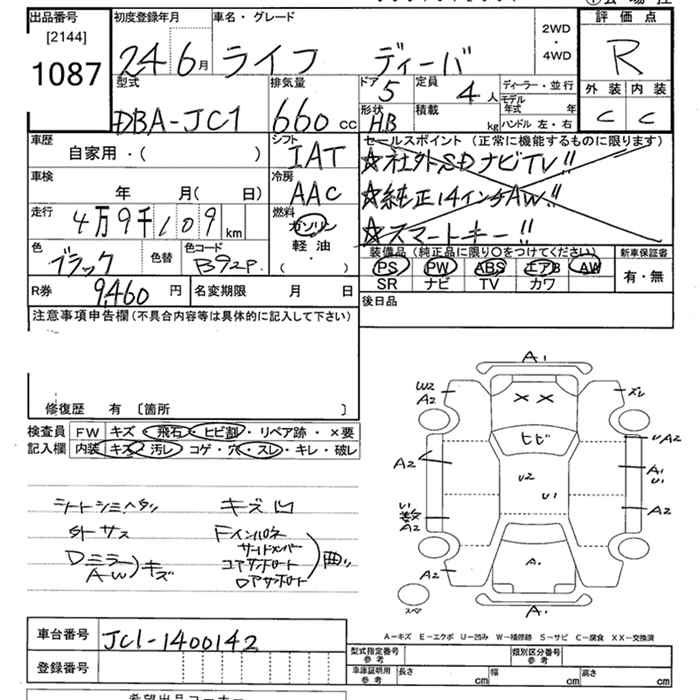 出品番号
[2144]
1087
初度登録年月
24 6月
車名・グレード
ライフ ディーバ
2WD
・
4WD
評価点
R
外装 内装
C C
型式
DBA-JC1
排気量
660 CC
ドア 5
定員 4人
形状 HB
積載 kg
ディーラー・並行
モデル年式 年
ハンドル 左・右
車歴
自家用・( )
シフト
IAT
セールスポイント (正常に機能するものに限ります)
☆社外SDナビTV!!
☆純正14インチAW!!
☆スマートキー!!
車検
年 月( 日)
冷房
AAC
走行
4万9千109 km
燃料
ガソリン
軽油
・( )
色
ブラック
色替
色コード
B92P
装備品 (純正品に限り〇をつけてください)
PS PW ABS エアB AW
SR ナビ TV カワ
新車保証書
有・無
R券 9,460 円
名変期限 月 日
後日品
注意事項申告欄(不具合内容等は具体的に記入して下さい)
修復歴 有 〔箇所 〕
検査員記入欄
FW キズ・飛石・ヒビ割・リペア跡・×要
内装 キズ・汚レ コゲ・穴・スレ・キレ・破レ
シートシミヘタリ
外サス
Dミラー
AW
キズ
キズ凹
Fインパネ
サイドメンバー
コアサポート
ロアサポート
曲り
A1
W2
A2
××
ズレ
ヒビ
A2
UA2
A1
U1
U2
U1
U1
数
A2
A2
A2
A1
スペア
A1
A-キズ E-エクボ U-凹み W-補修跡 S-サビ C-腐食 XX-交換済
車台番号
JC1-1400142
登録番号
型式指定番号
参考
類別区分番号
参考
車庫証明用
参考
長さ cm
幅 cm
高さ cm
希望出品コーナー